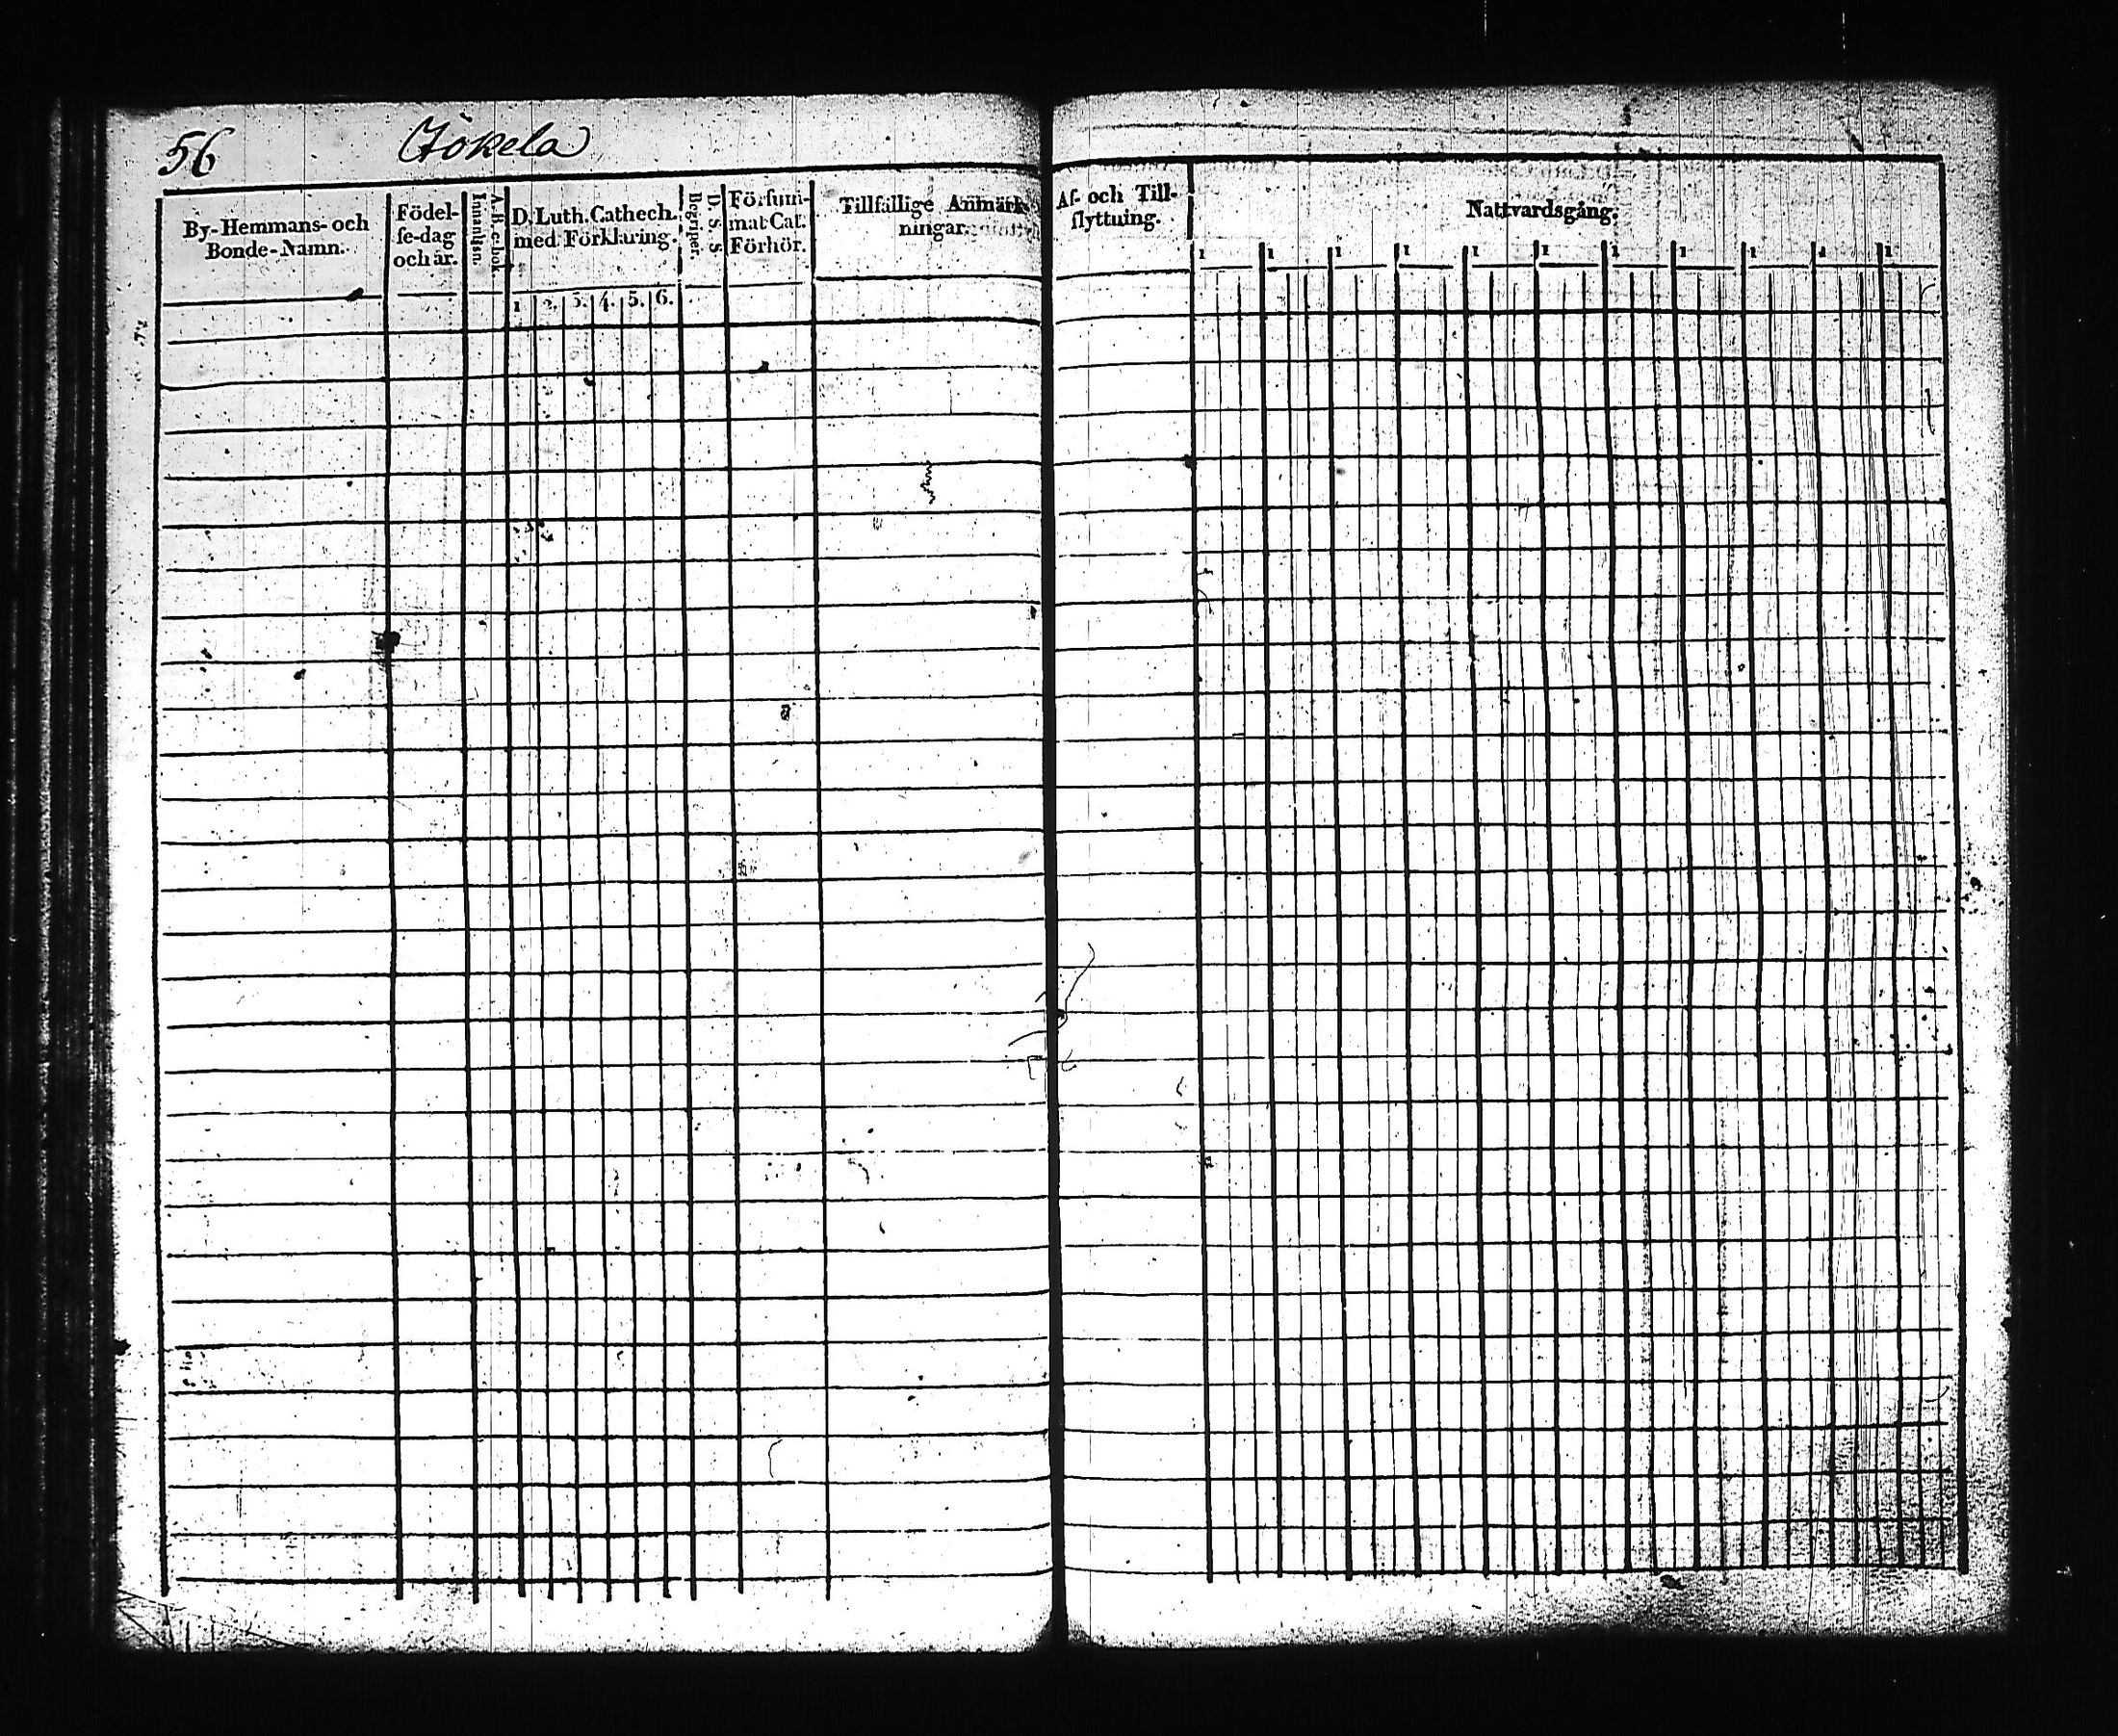 56 Jökela
By-Hemmans- och
Bonde-Namn.
Födel-
se-dag
och år.
A-B-c-bok
Innanläsn.
D. Luth. Cathech.
med Förklaring.
1 2. 3. 4. 5. 6.
D. S. S.
Begriper.
Försum-
mat Cat.
Förhör.
Tillfällige Anmärk-
ningar.
Af- och Till-
flyttning.
Nattvardsgång.
1 1 1 1 1 1 1 1 1 1 1